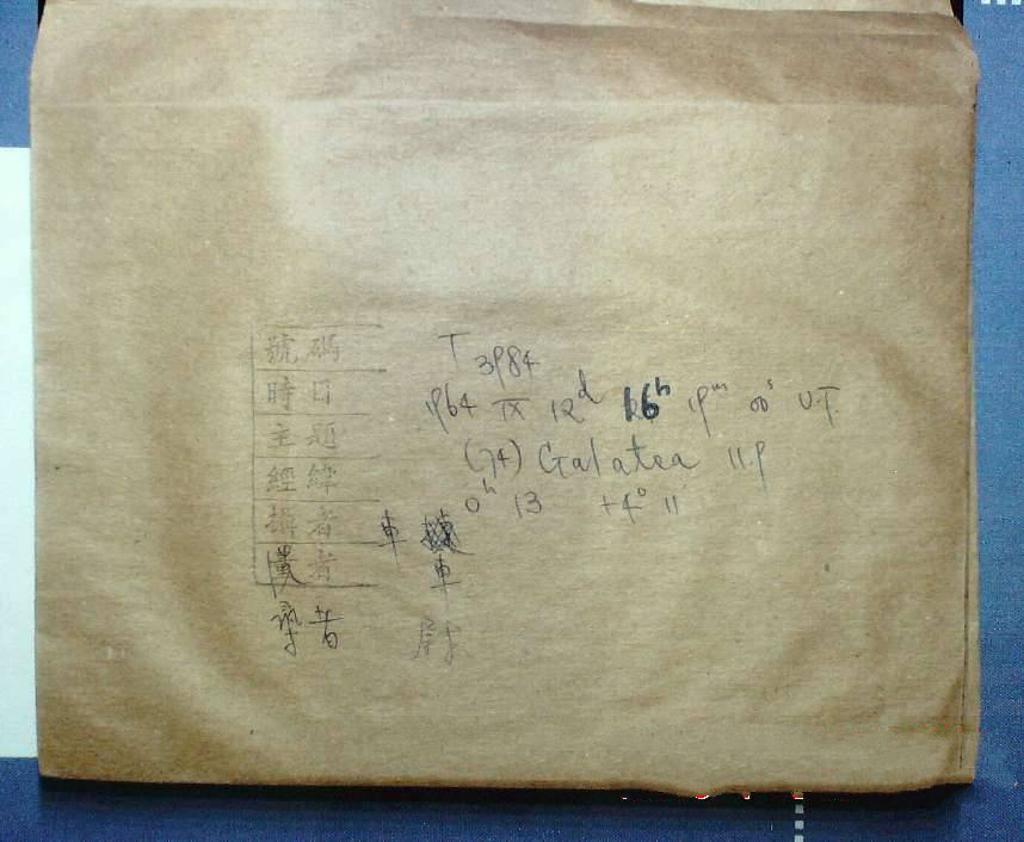 號碼 T 3984
時日 1964 IX 12ᵈ 16ʰ 19ᵐ 00ˢ U.T.
主題 (74) Galatea 11.9
經緯 0ʰ 13 +4° 11
攝者 車
者 車
者